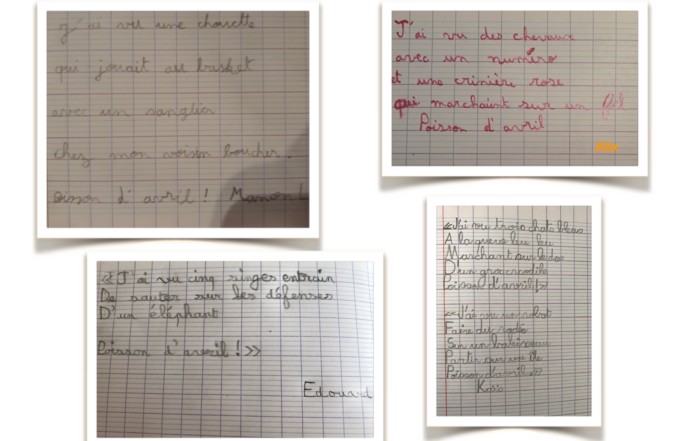 J'ai vu une chouette
qui jouait au basket
avec un sanglier
chez mon voisin boucher.
oisson d'avril ! Manon
J'ai vu des chevaux
avec un numéro
et une crinière rose
qui marchaint sur un fil
Poisson d'avril
«J'ai vu cinq singes entrain
De sauter sur les défenses
D'un éléphant
Poisson d'avril !»
Edouard
«J'ai vu trois chats bleus
A la queue leu leu
Marchant sur le dos
D'un gros crocodile
Poisson d'avril !»
«J'ai vu un robot
Faire du rodéo
Sur un
Partir sur une île
Poisson d'avril»